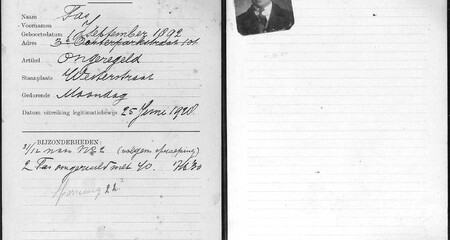 Naam Fas
Voornamen J
Geboortedatum 16 September 1892
Adres 3e Oosterparkstraat 101
Artikel Ongeregeld
Staanplaats Westerstraat
Gedurende Maandag
Datum uitreiking legitimatiebewijs 25 Juni 1928
BIJZONDERHEDEN:
3/12 naar No 2 (volgens oproeping)
2 Fas omgeruild met 40. 7/4 30